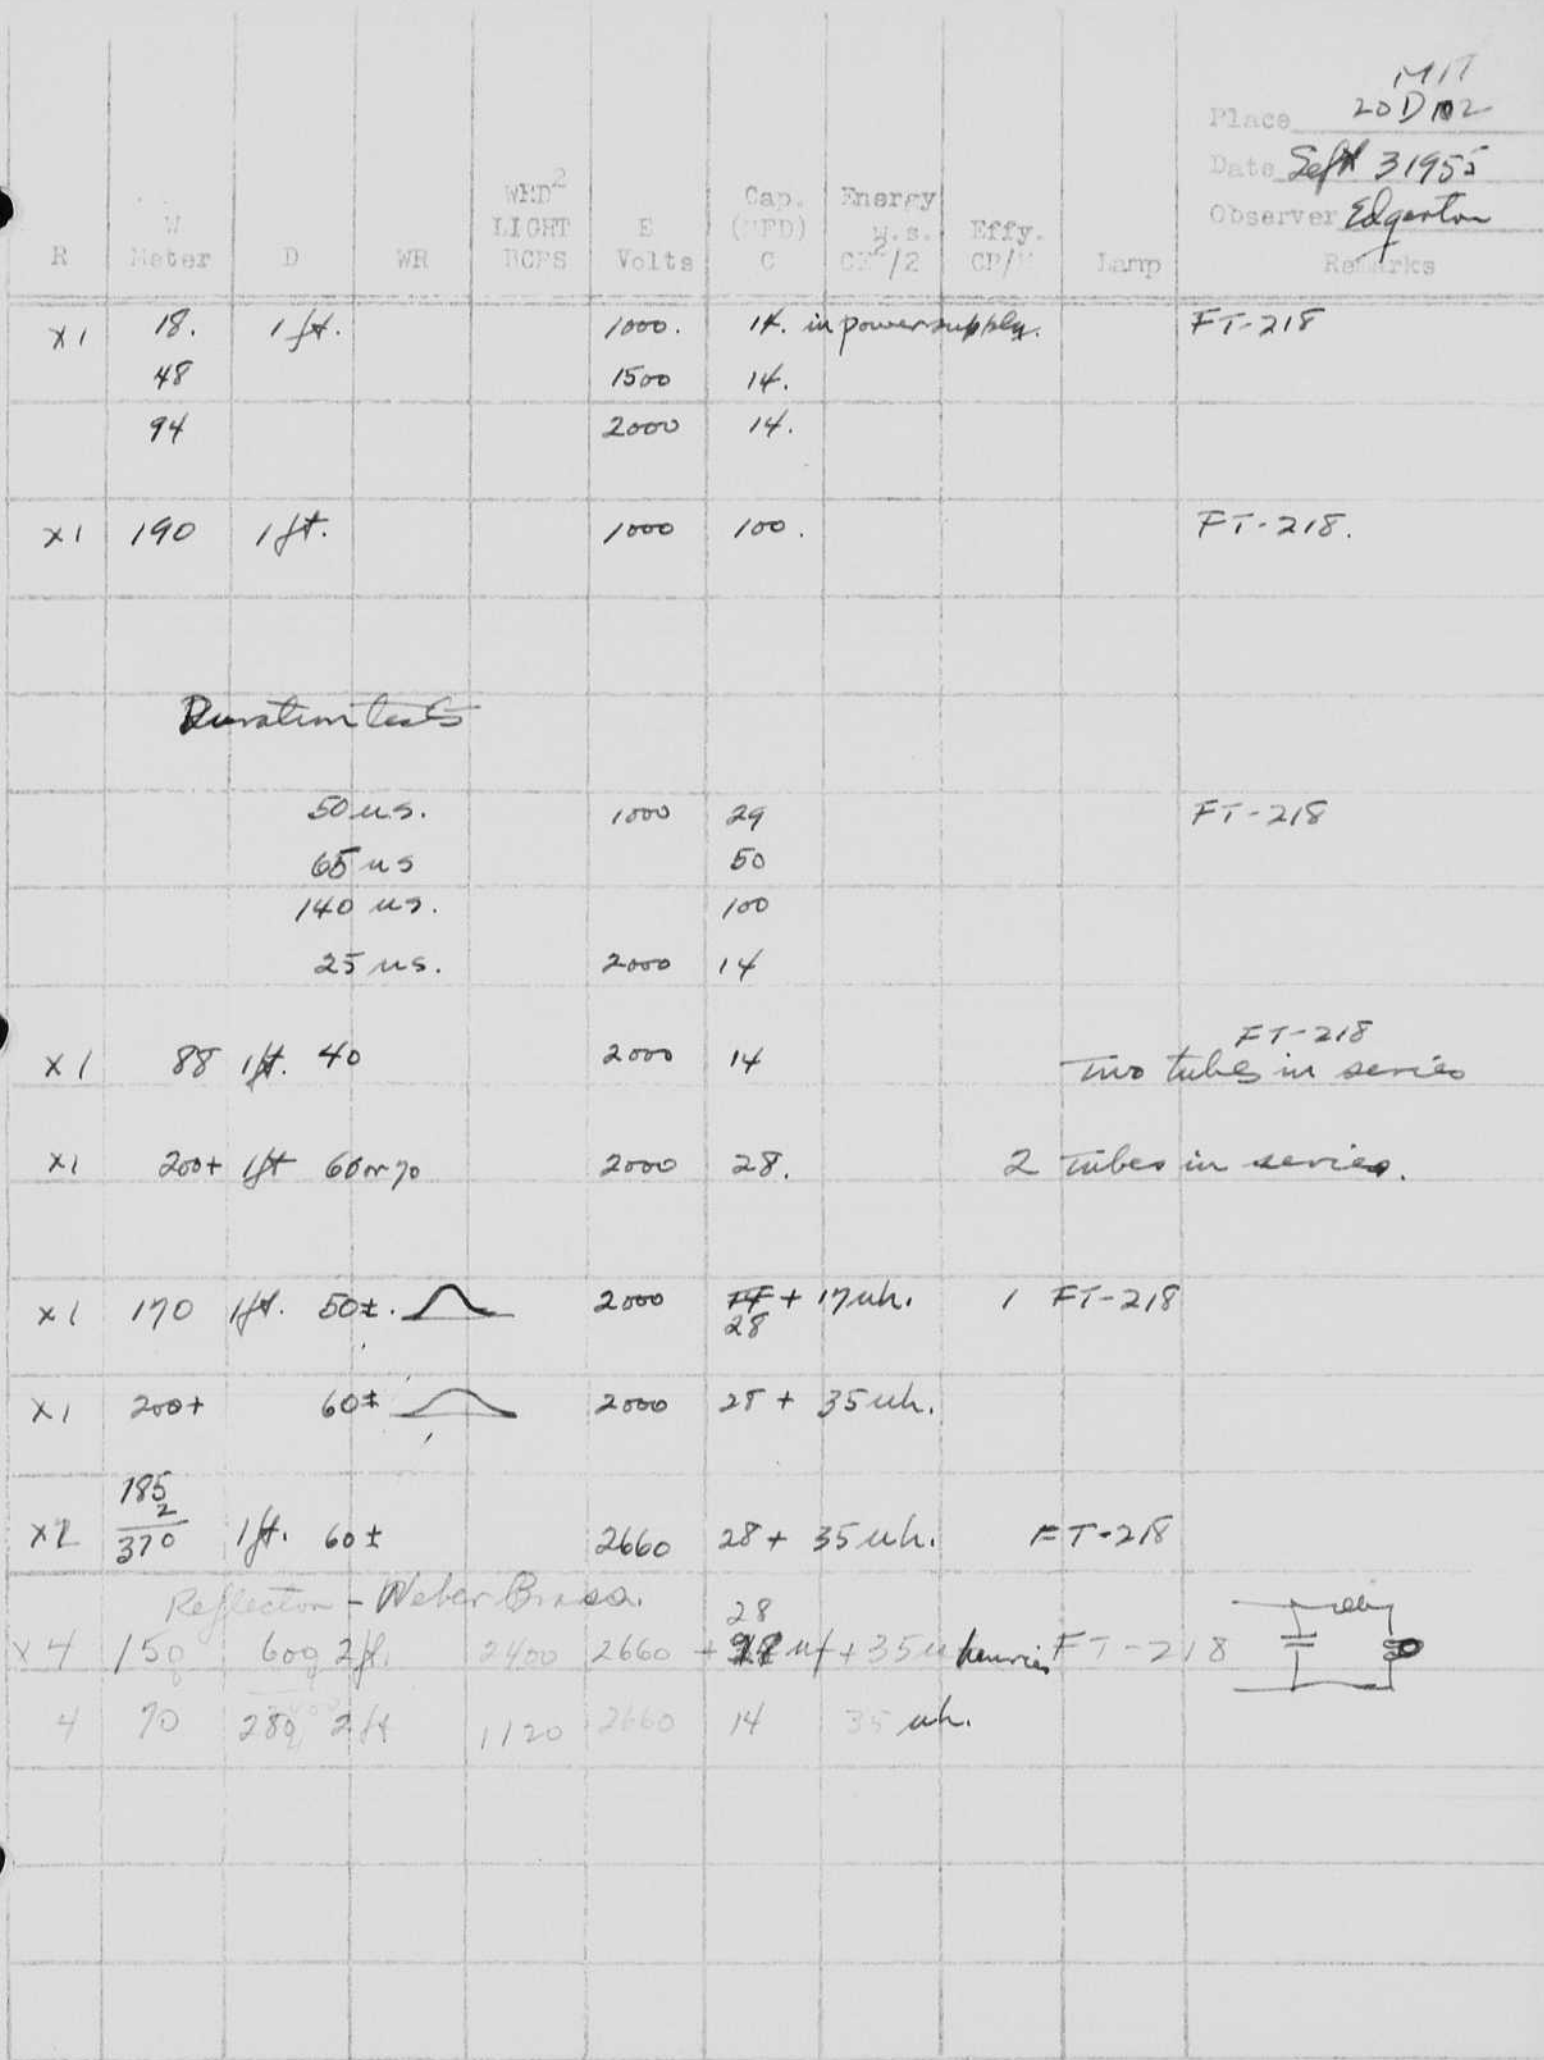 MIT
Place 20D102
Date Sept 3 1955
Observer Edgerton
R W Meter D WR WRD² LIGHT BCPS E Volts Cap. (MFD) C Energy w.s. CE²/2 Effy. CP/W Lamp Remarks
X1 18. 1 ft. 1000. 14. in power supply. FT-218
48 1500 14.
94 2000 14.
X1 190 1 ft. 1000 100. FT-218.
Duration tests
50 us. 1000 29 FT-218
65 us 50
140 us. 100
25 us. 2000 14
FT-218
X1 88 1ft. 40 2000 14 Two tubes in series
X1 200+ 1ft 60 or 70 2000 28. 2 Tubes in series.
X1 170 1ft. 50±. 2000 14 + 17 uh. 1 FT-218
28
X1 200+ 60± 2000 28 + 35 uh.
185
2
X2 370 1ft. 60± 2660 28 + 35 uh. FT-218
Reflector - Weber Brass.
28
X4 150 600 2ft. 2400 2660 + uf + 35 u henries FT-218
4 70 280 2ft 1120 2660 14 35 uh.